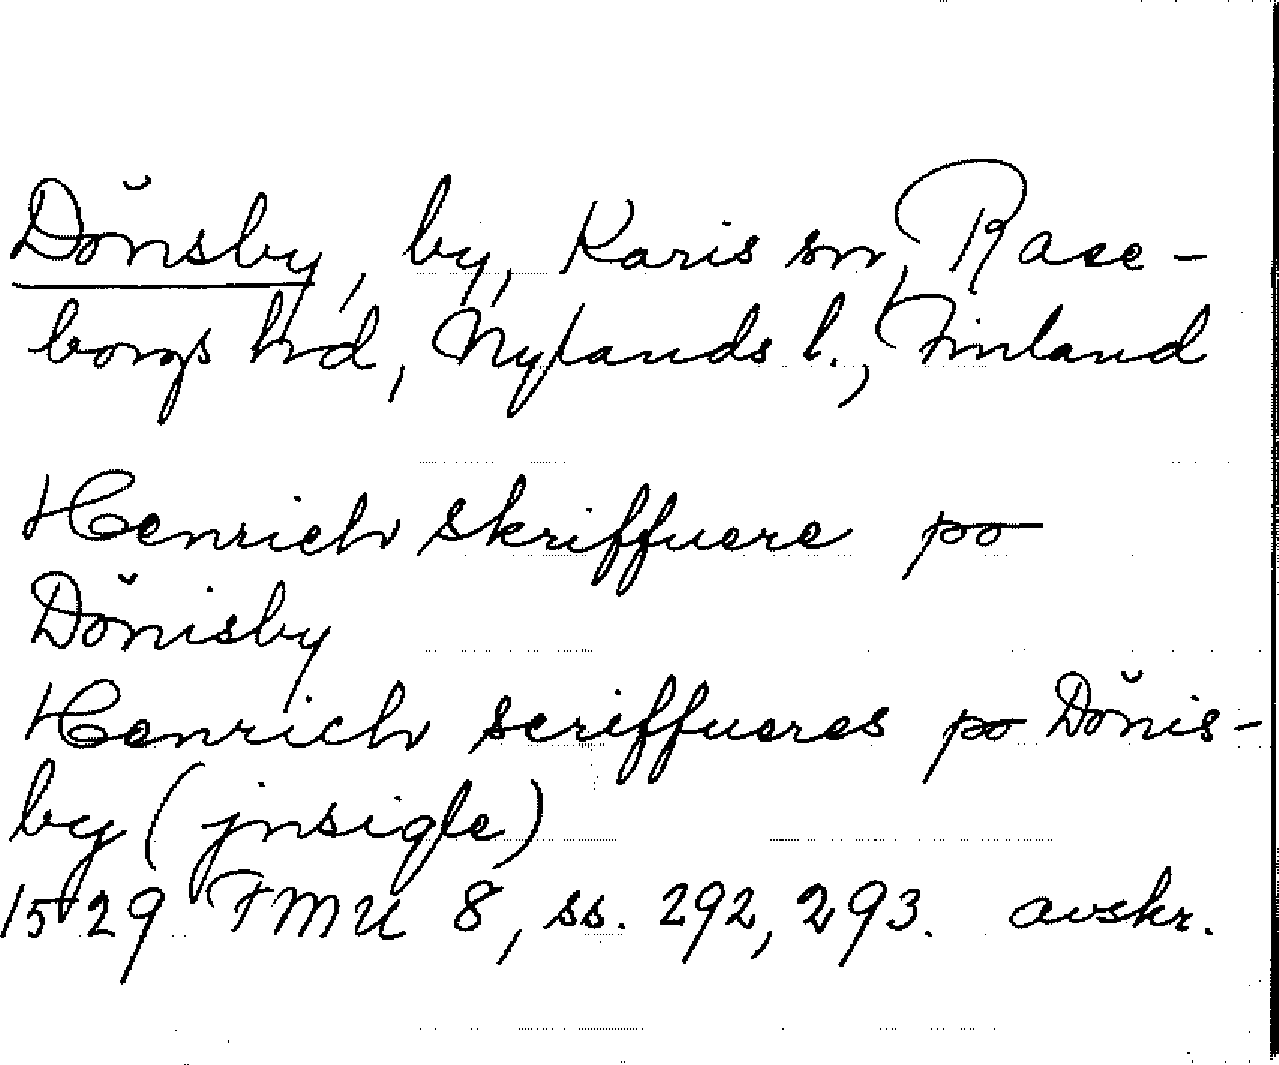 Dönsby, by, Karis sn, Rase-
borgs hd, Nylands l., Finland
Henrich skriffuere po
Dönisby
Henrich scriffueres po Dönis-
by (jnsigle)
1529 FMU 8, ss. 292, 293. avskr.